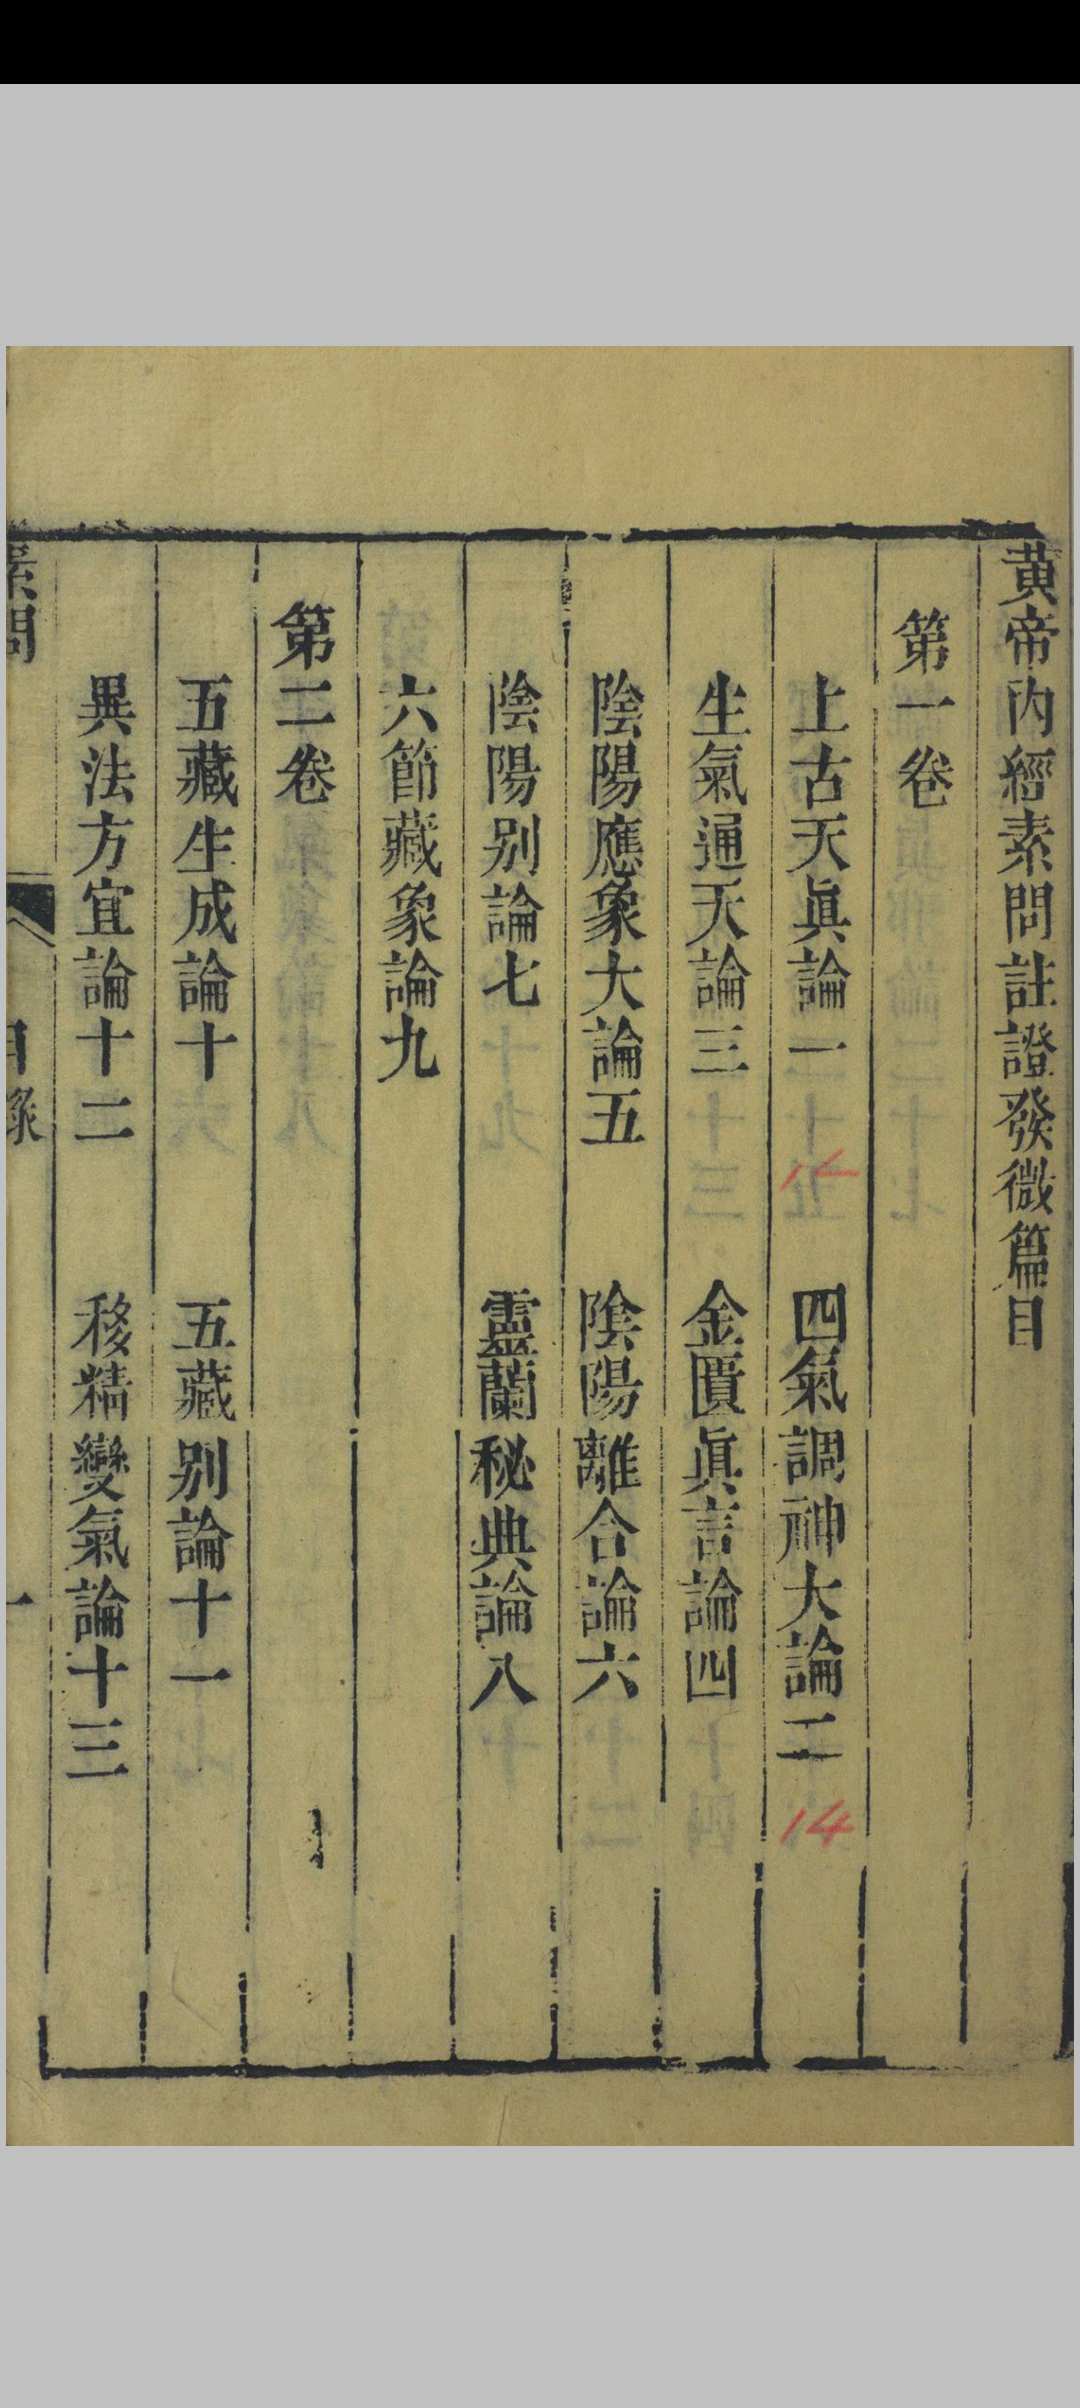 黄帝內經素問註證發微篇目
第一卷
上古天眞論一 四氣調神大論二 14
生氣通天論三 金匱眞言論四
陰陽應象大論五 陰陽離合論六
陰陽别論七 靈蘭秘典論八
六節藏象論九
第二卷
五藏生成論十 五藏别論十一
異法方宜論十二 移精變氣論十三
素問 目錄 一